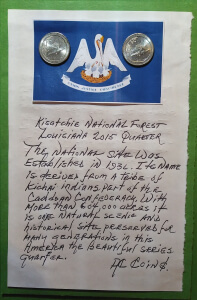 Kisatchie National Forest
Louisiana 2015 Quarter
The National Site Was
Established in 1936. The Name
is derived from a tribe of
Kichai Indians part of the
Caddoan Confederacy. With
more than 604,000 acres it
is one natural scenic and
historical site preserved for
many generations in this
America the beautiful series
quarter.
Coins